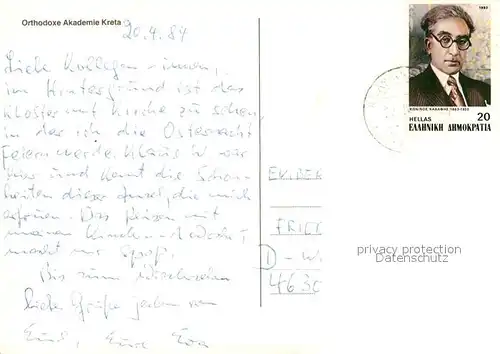 Orthodoxe Akademie Kreta
20.4.84
Liebe Kollegen-innen,
im Hintergrund ist das
Kloster mit Kirche zu sehen,
in der ich die Osternacht
feiern werde. Klaus W war
hier und kennt die Schön-
heiten dieser Insel, die mich
erfreuen. Das Reisen mit
meinen
macht mir Spaß.
Bis zum Wiedersehen
liebe Grüße jedem von
Euch, Eure Eva
1983
ΚΩΝ/ΝΟΣ ΚΑΒΑΦΗΣ 1863-1933
HELLAS 20
ΕΛΛΗΝΙΚΗ ΔΗΜΟΚΡΑΤΙΑ
EV.
FRIED
D - W
4630
privacy protection
Datenschutz